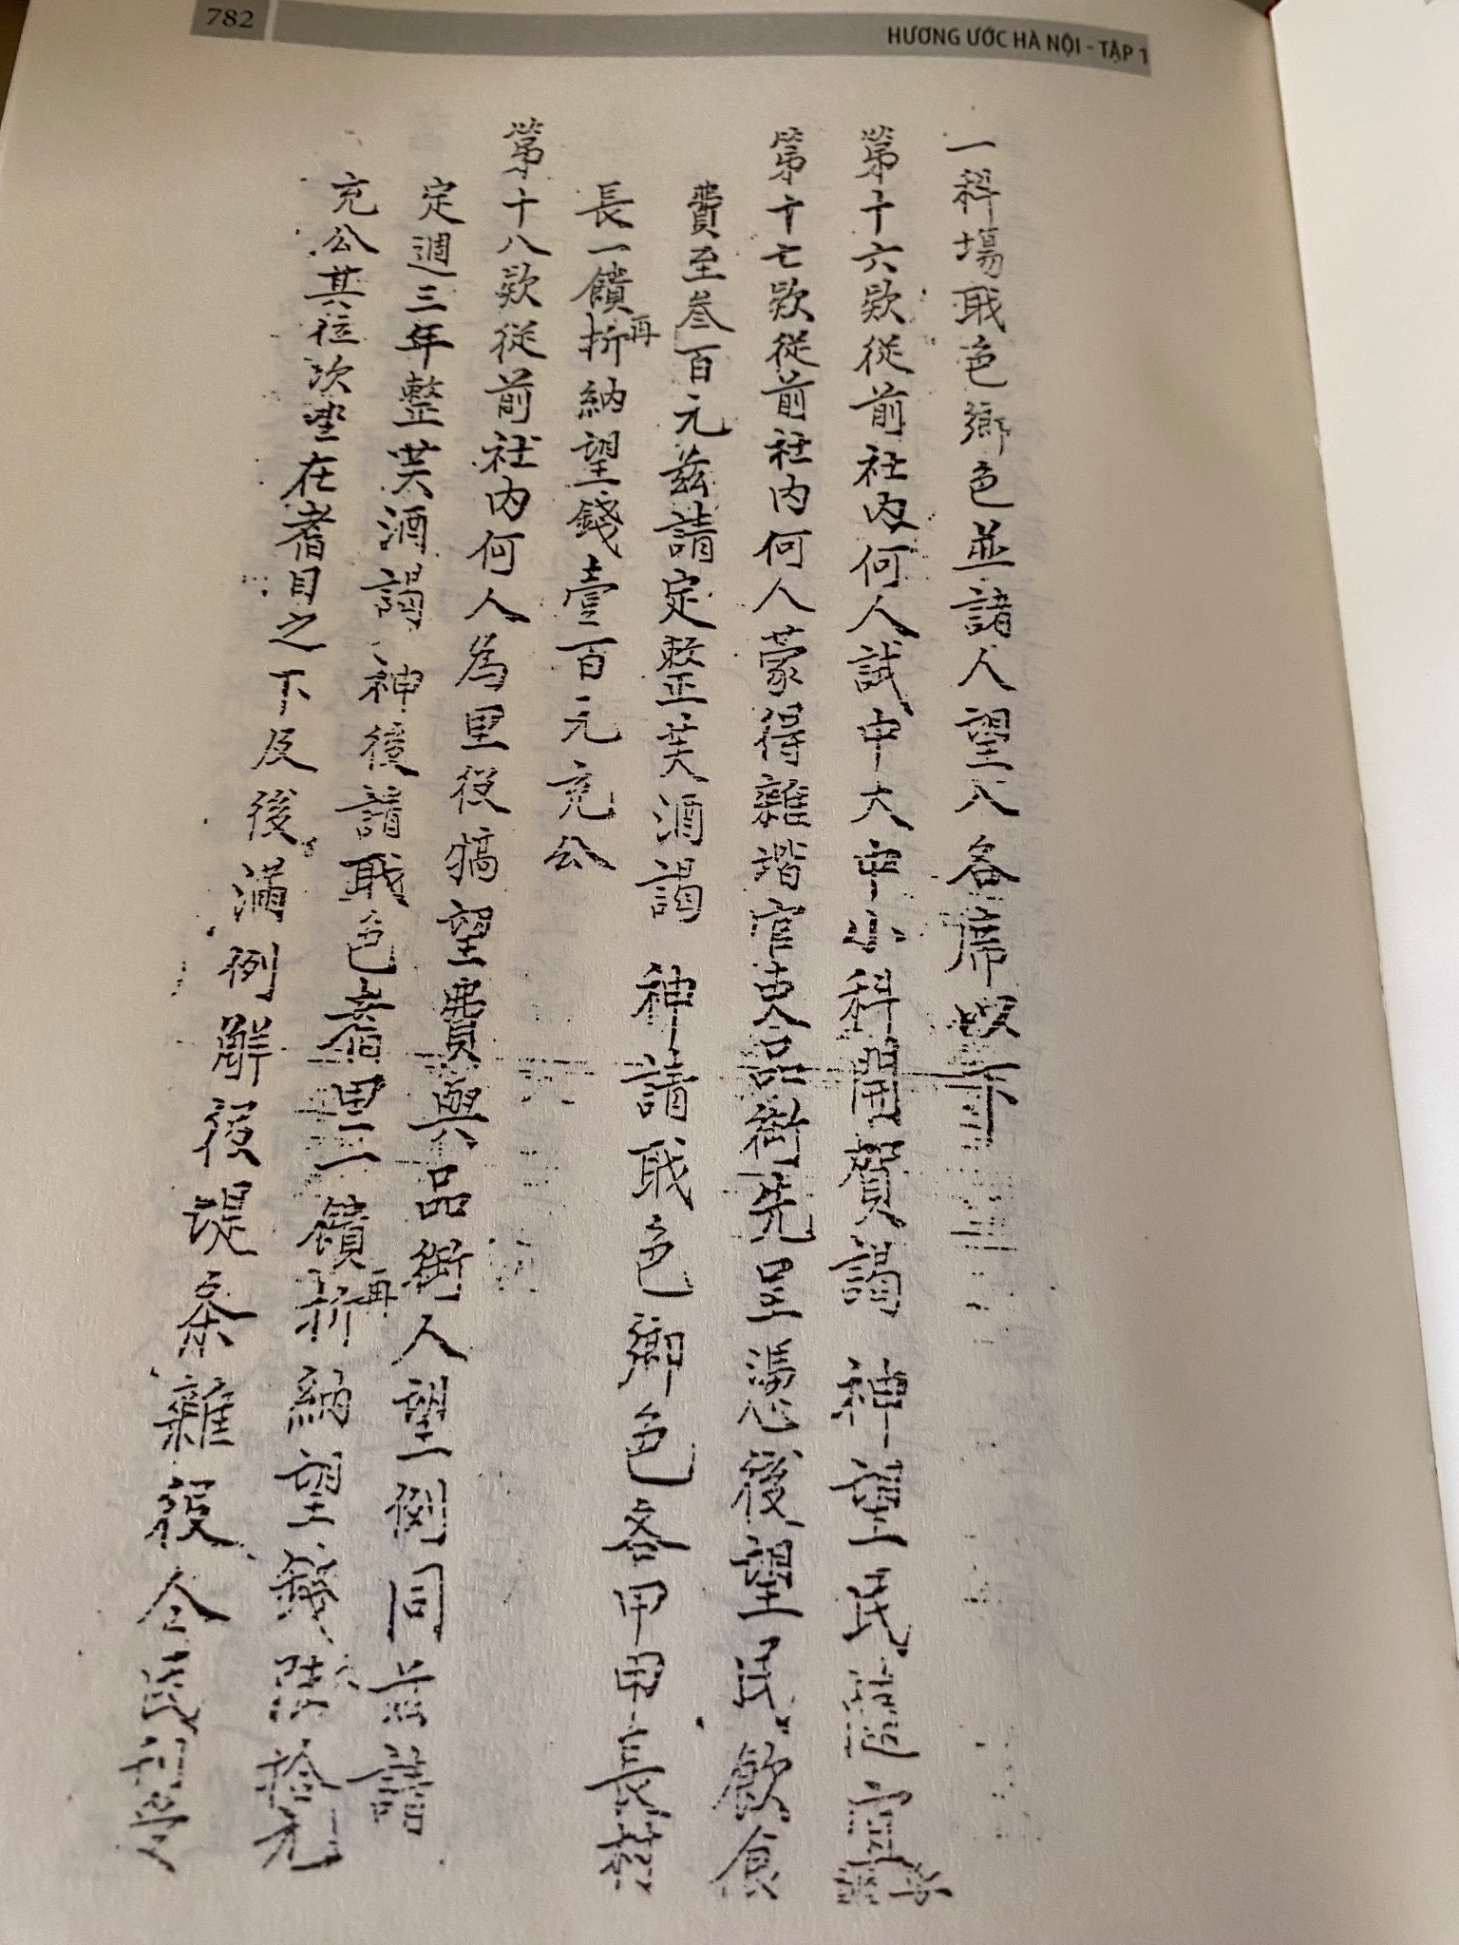 782
HƯƠNG ƯỚC HÀ NỘI - TẬP 1
一科場職色鄉色並諸人望入各席以下
第十六款從前社内何人試中大中小科開賀謁神望民隨宜
第十七款從前社内何人蒙得雜堦官吏品銜先呈憑後望民飲食
費至叁百元兹請定整芙酒謁神請職色鄉色各甲甲長
長一饋再折納望錢壹百元充公
第十八款從前社内何人為里役犒望費與品銜人望例同兹請
定週三年整芙酒謁神後請職色耆里一饋再折納望錢陸拾元
充公其位次坐在耆目之下及後滿例觧役堤条雜役仝民利受